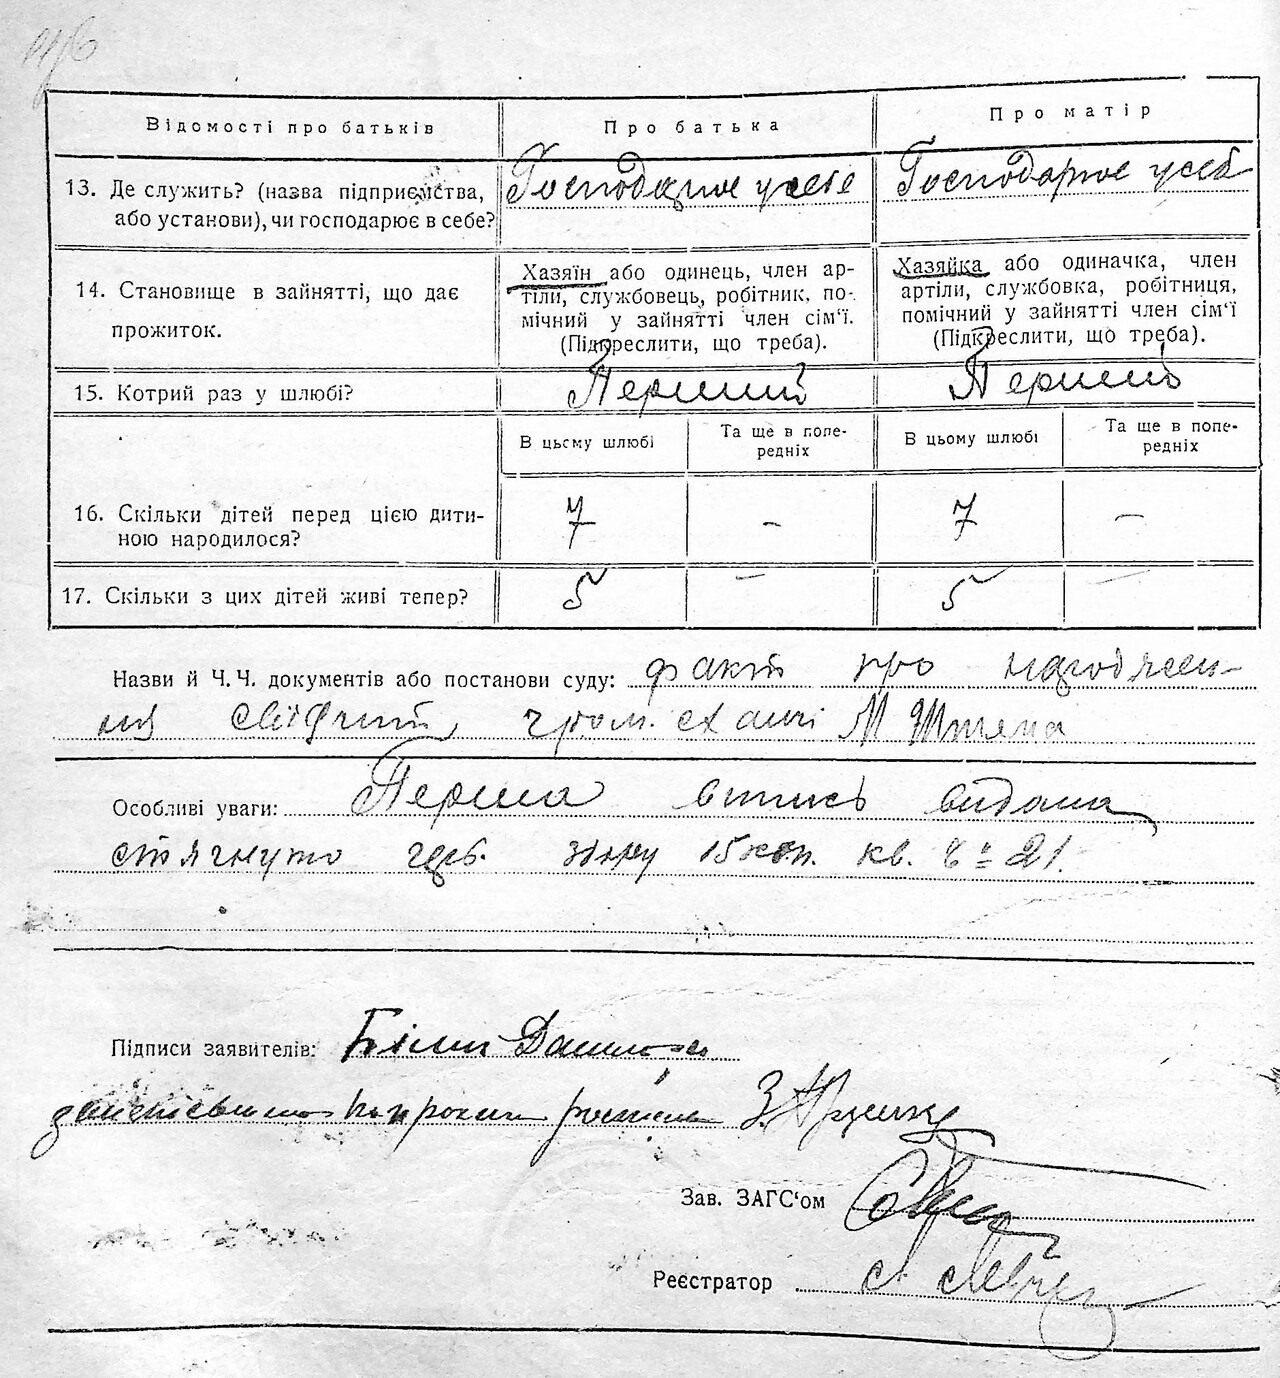 Відомості про батьків
Про батька
Про матір
13. Де служить? (назва підприємства, або установи), чи господарює в себе?
Господарює у себе
Господарює у себе
14. Становище в зайнятті, що дає прожиток.
Хазяїн або одинець, член ар-
тіли, службовець, робітник, по-
мічний у зайнятті член сім‘ї.
(Підкреслити, що треба).
Хазяйка або одиначка, член
артіли, службовка, робітниця,
помічний у зайнятті член сім‘ї
(Підкреслити, що треба).
15. Котрий раз у шлюбі?
Перший
Перший
В цьому шлюбі
Та ще в попе-
редніх
В цьому шлюбі
Та ще в попе-
редніх
16. Скільки дітей перед цією дити-
ною народилося?
7 - 7 -
17. Скільки з цих дітей живі тепер?
5 - 5 -
Назви й Ч. Ч. документів або постанови суду: факт про народжен-
ня свідчий гром.
Особливі уваги: Перша випись видана
стягнуто герб. збору 15 коп. кв. 21.
Підписи заявителів: Білий
Зав. ЗАГС‘ом
Реєстратор